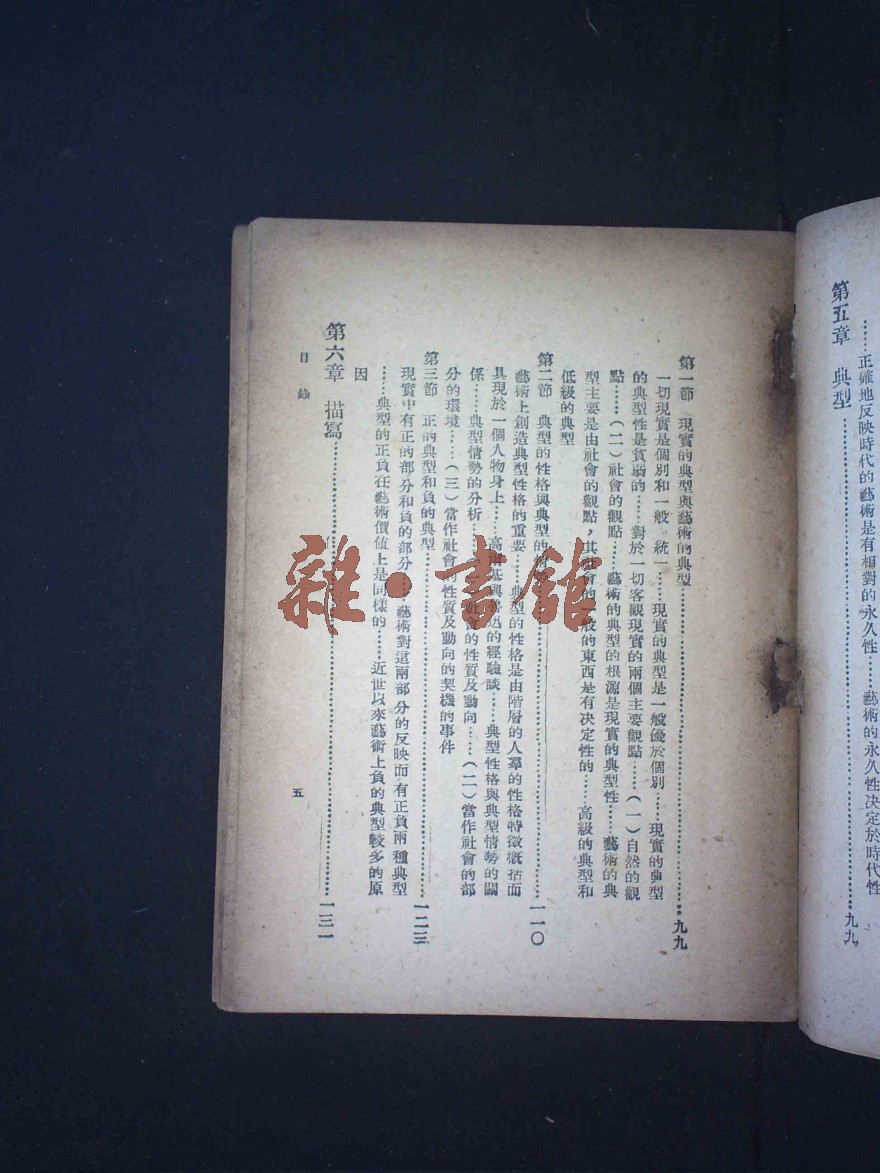 ……正確地反映時代的藝術是有相對的永久性……藝術的永久性決定於時代性
第五章 典型……九九
第一節 現實的典型與藝術的典型……九九
一切現實是個別和一般 統一……現實的典型是一般優於個別……現實的典型
的典型性是貧弱的……對於一切客觀現實的兩個主要觀點……(一)自然的觀
點……(二)社會的觀點……藝術的典型的根源是現實的典型性……藝術的典
型主要是由社會的觀點,其社會的一般的東西是有決定性的……高級的典型和
低級的典型
第二節 典型的性格與典型的情勢……一一〇
藝術上創造典型性格的重要……典型的性格是由階層的人羣的性格特徵概括而
具現於一個人物身上……高爾基與魯迅的經驗談……典型性格與典型情勢的關
係……典型情勢的分析……(一)社會的性質及動向……(二)當作社會的部
分的環境……(三)當作社會的性質及動向的契機的事件
第三節 正的典型和負的典型……一二三
現實中有正的部分和負的部分……藝術對這兩部分的反映而有正負兩種典型
……典型的正負在藝術價值上是同樣的……近世以來藝術上負的典型較多的原
因
第六章 描寫……一三一
目錄
五
雜·書館